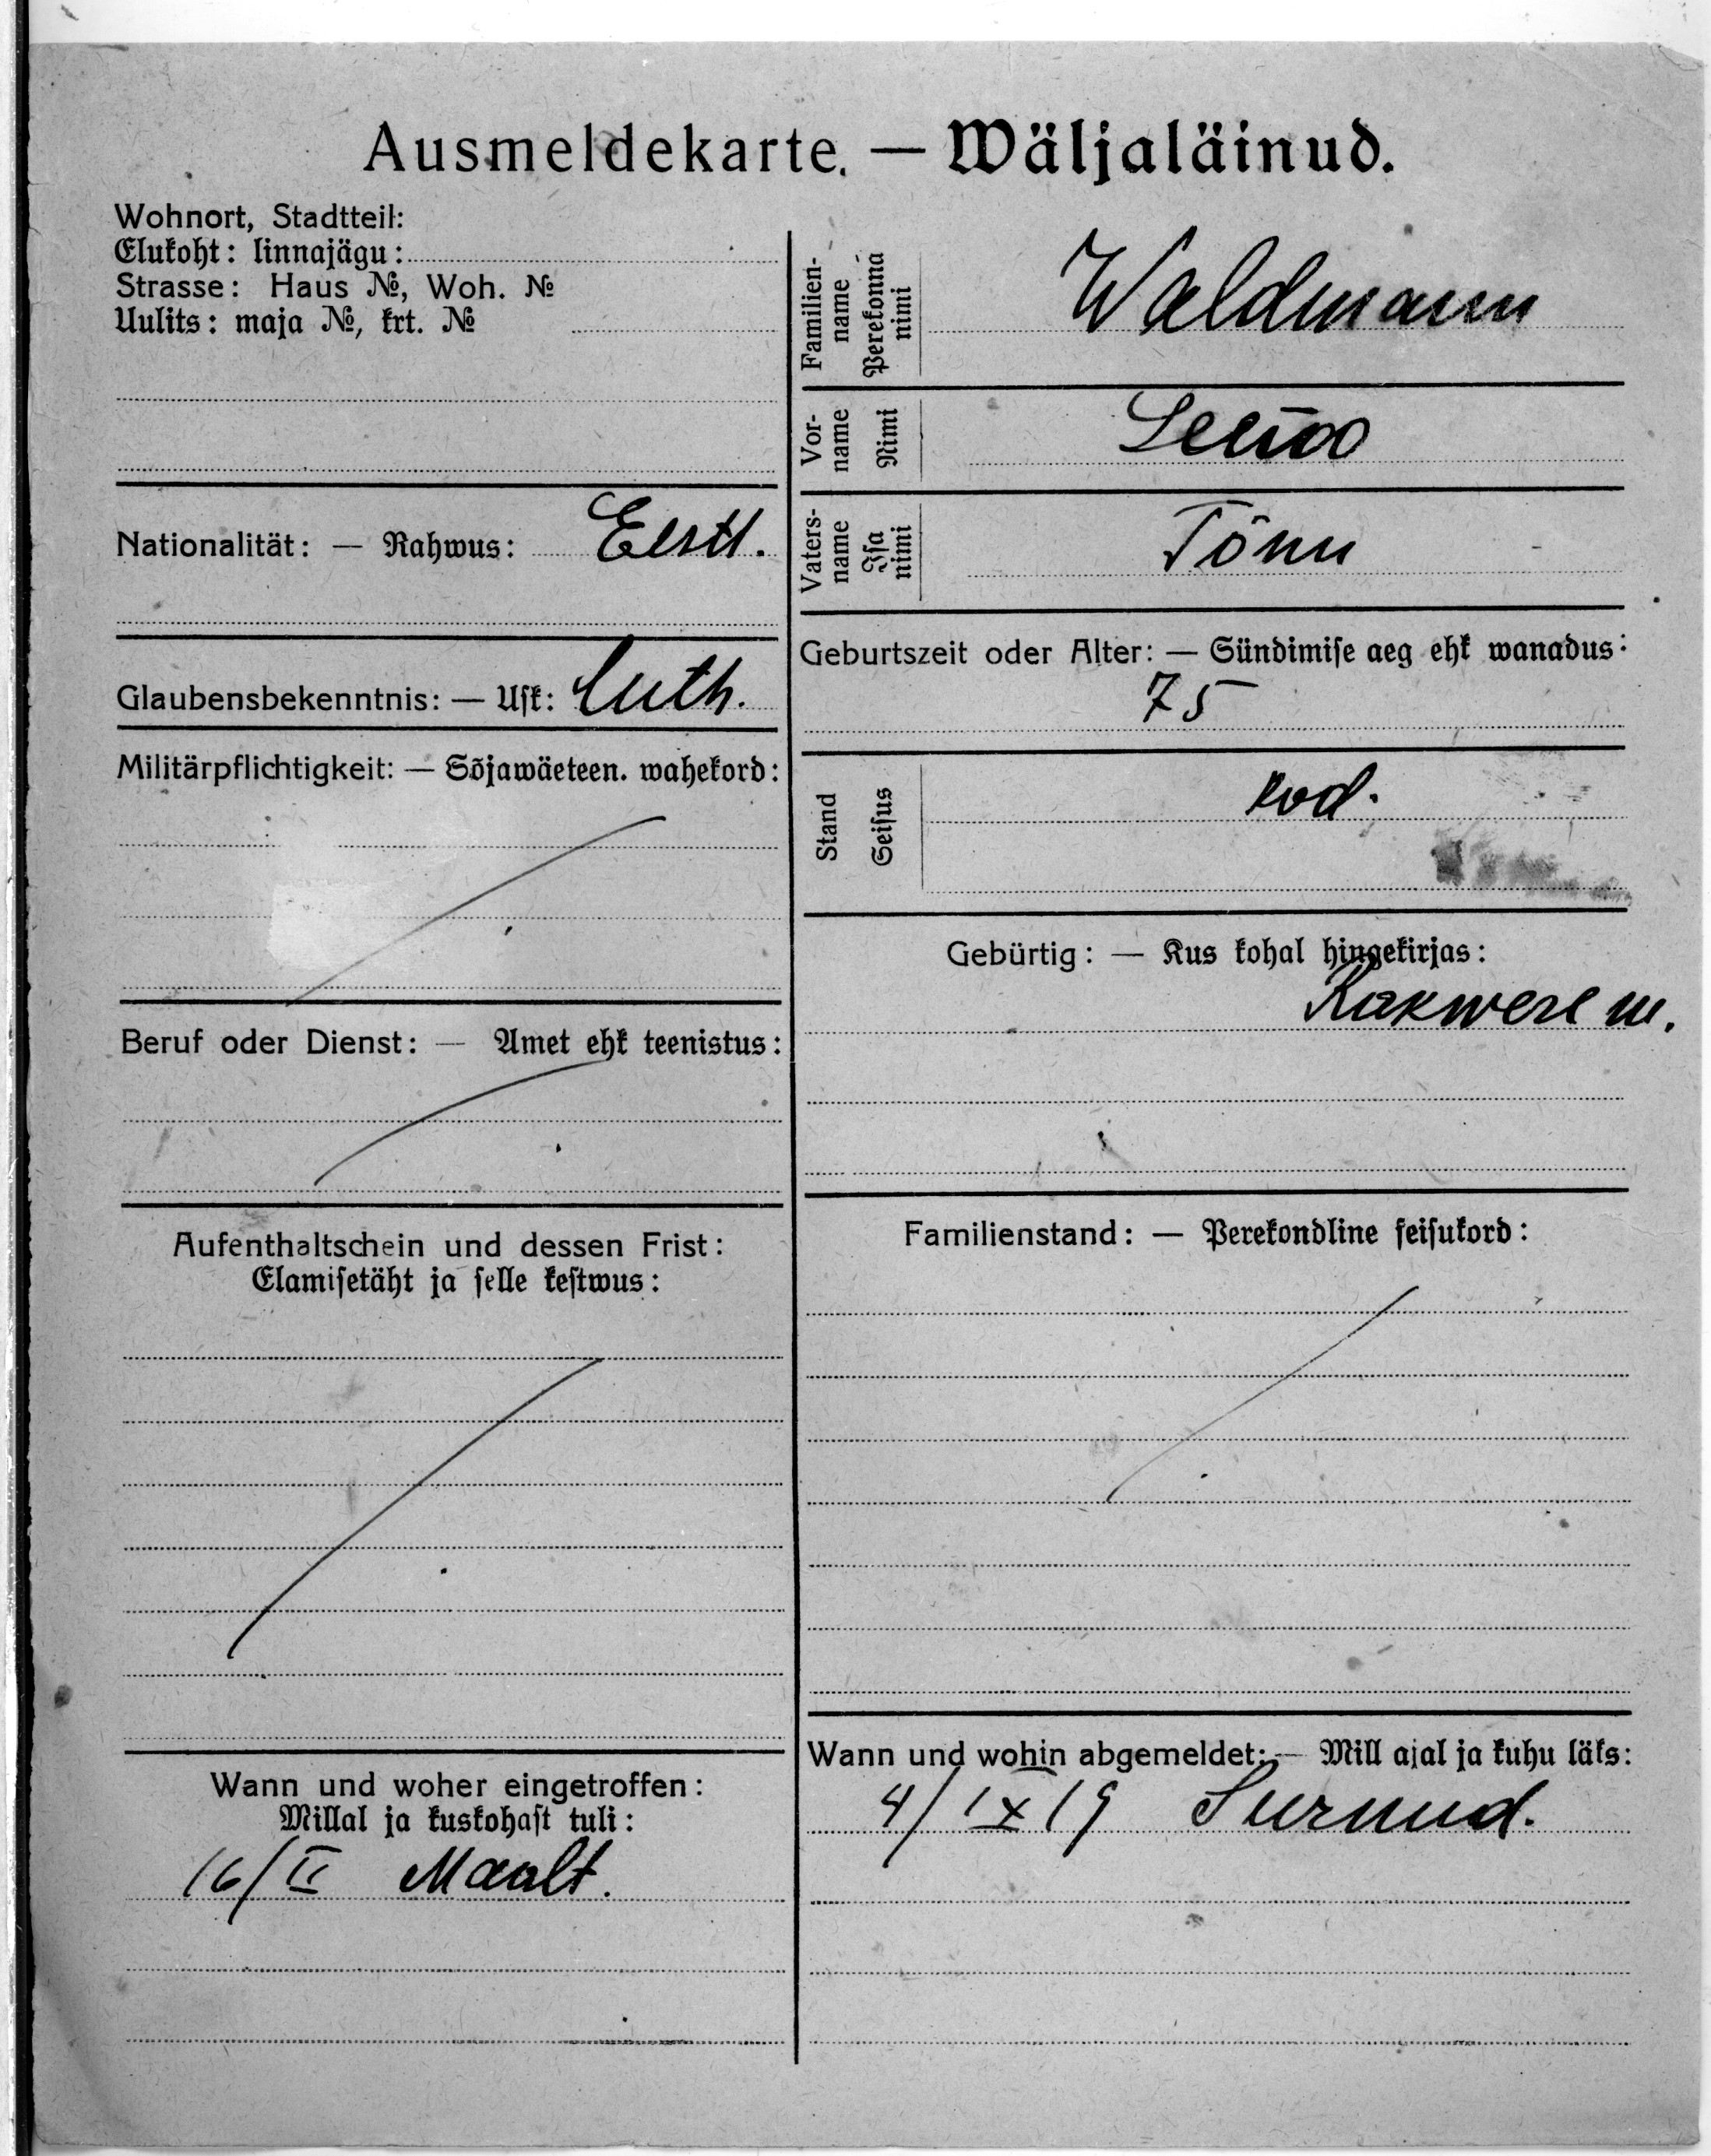 Ausmeldekarte. — Wäljaläinud.
Wohnort, Stadtteil:
Elukoht: linnajägu:
Strasse: Haus №, Woh. №
Uulits: maja №, krt. №
Nationalität: — Rahwus: Eestl.
Glaubensbekenntnis: — Usk: Luth.
Militärpflichtigkeit: — Sõjawäeteen. wahekord:
Beruf oder Dienst: — Amet ehk teenistus:
Aufenthaltschein und dessen Frist:
Elamisetäht ja selle kestwus:
Wann und woher eingetroffen:
Millal ja kuskohast tuli:
16/II Maalt.
Familien-
name
Perekonna
nimi
Waldmann
Vor-
name
Nimi
Vaters-
name
Isa
nimi
Tõnu
Geburtszeit oder Alter: — Sündimise aeg ehk wanadus:
75
Stand
Seisus
kod.
Gebürtig: — Kus kohal hingekirjas:
Rakwere m.
Familienstand: — Perekondline seisukord:
Wann und wohin abgemeldet: — Mill ajal ja kuhu läks:
4/IX 19 Surnud.